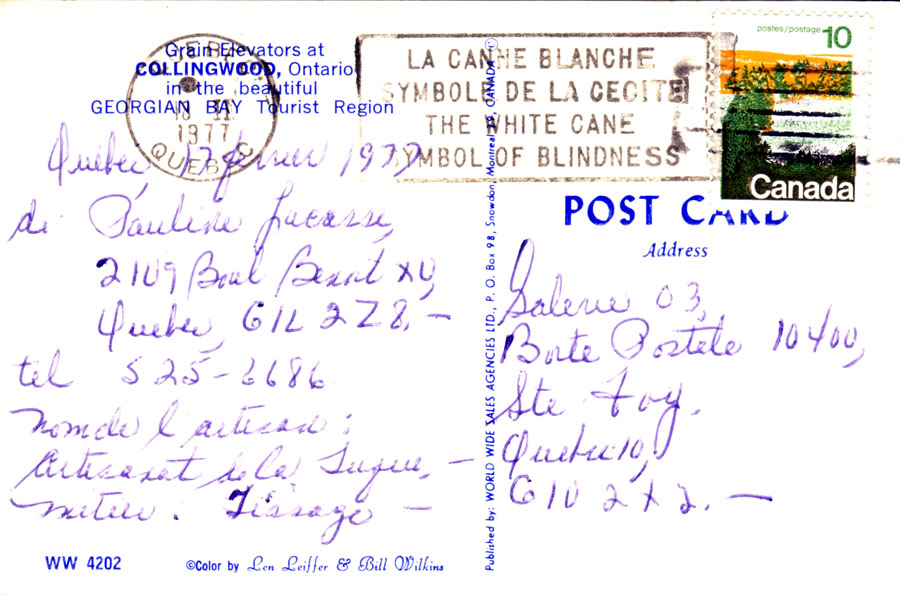 Grain Elevators at
COLLINGWOOD, Ontario
in the beautiful
GEORGIAN BAY Tourist Region
1977
QUEBEC
LA CANNE BLANCHE
SYMBOLE DE LA CECITE
THE WHITE CANE
SYMBOL OF BLINDNESS
postes/postage 10
Canada
POST CARD
Address
Quebec, 17 février 1977
de Pauline Lacasse,
2109 Boul Benoit XV,
Quebec, G1L 2Z8, —
tel 525-6686
Nom de l'artisan :
Artisanat de la —
métier : Tissage —
Galerie 03,
Boite Postale 10400,
Ste Foy.
Quebec 10,
G1V 2X2. —
Published by: WORLD WIDE SALES AGENCIES LTD., P. O. Box 98, Snowdon, Montreal CANADA ©
WW 4202
©Color by Len Leiffer & Bill Wilkins